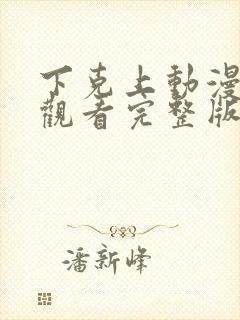 下克上動漫
觀看完整版
潘新峰